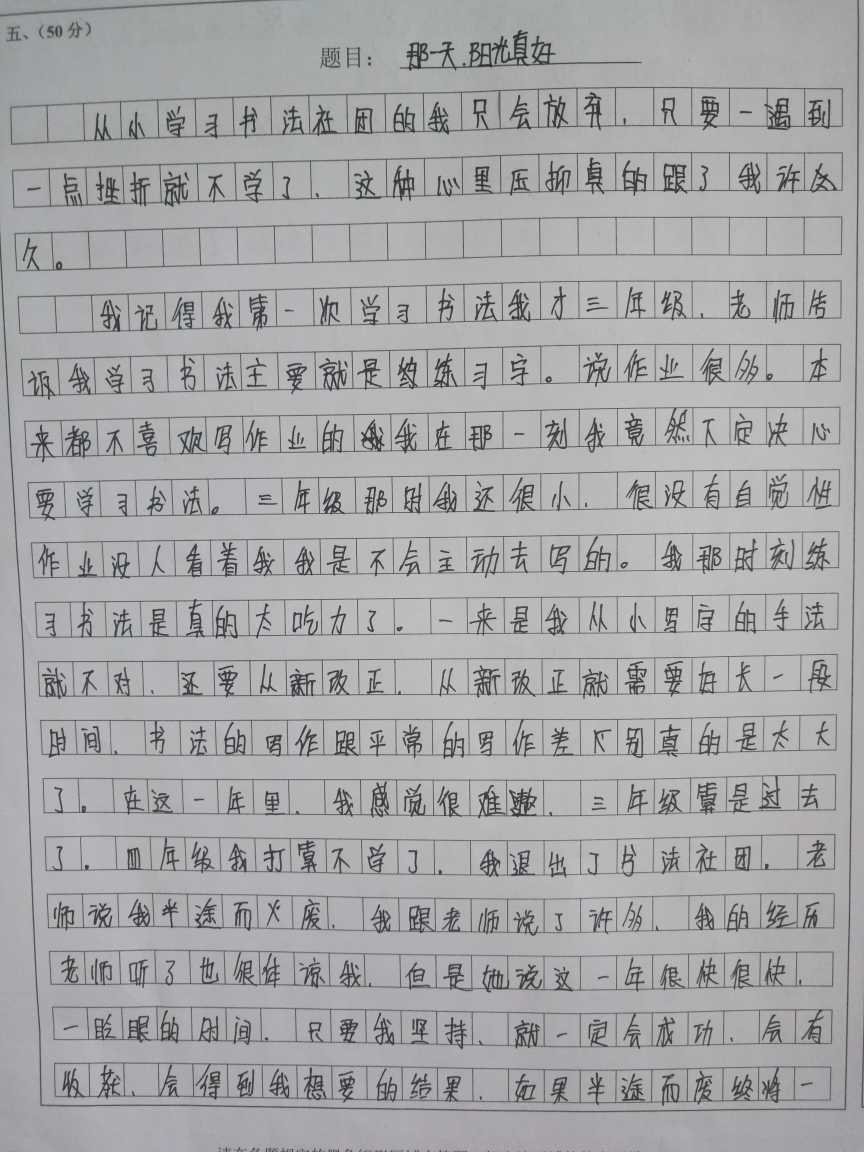 五、（50分）
题目：那一天，阳光真好
从小学习书法社团的我只会放弃，只要一遇到
一点挫折就不学了，这种心里压抑真的跟了我许
久。
我记得我第一次学习书法我才三年级，老师告
诉我学习书法主要就是练习字。说作业很多。本
来都不喜欢写作业的我在那一刻我竟然下定决心
要学习书法。三年级那时我还很小，很没有自觉性
作业没人看着我我是不会主动去写的。我那时刻练
习书法是真的太吃力了。一来是我从小写字的手法
就不对，还要从新改正，从新改正就需要好长一段
时间，书法的写作跟平常的写作差别真的是太大
了。在这一年里，我感觉很难，三年级算是过去
了，四年级我打算不学了，我退出了书法社团，老
师说我半途而废，我跟老师说了许多，我的经历
老师听了也很体谅我，但是她说这一年很快很快，
一眨眼的时间，只要我坚持，就一定会成功，会有
收获，会得到我想要的结果，如果半途而废终将一